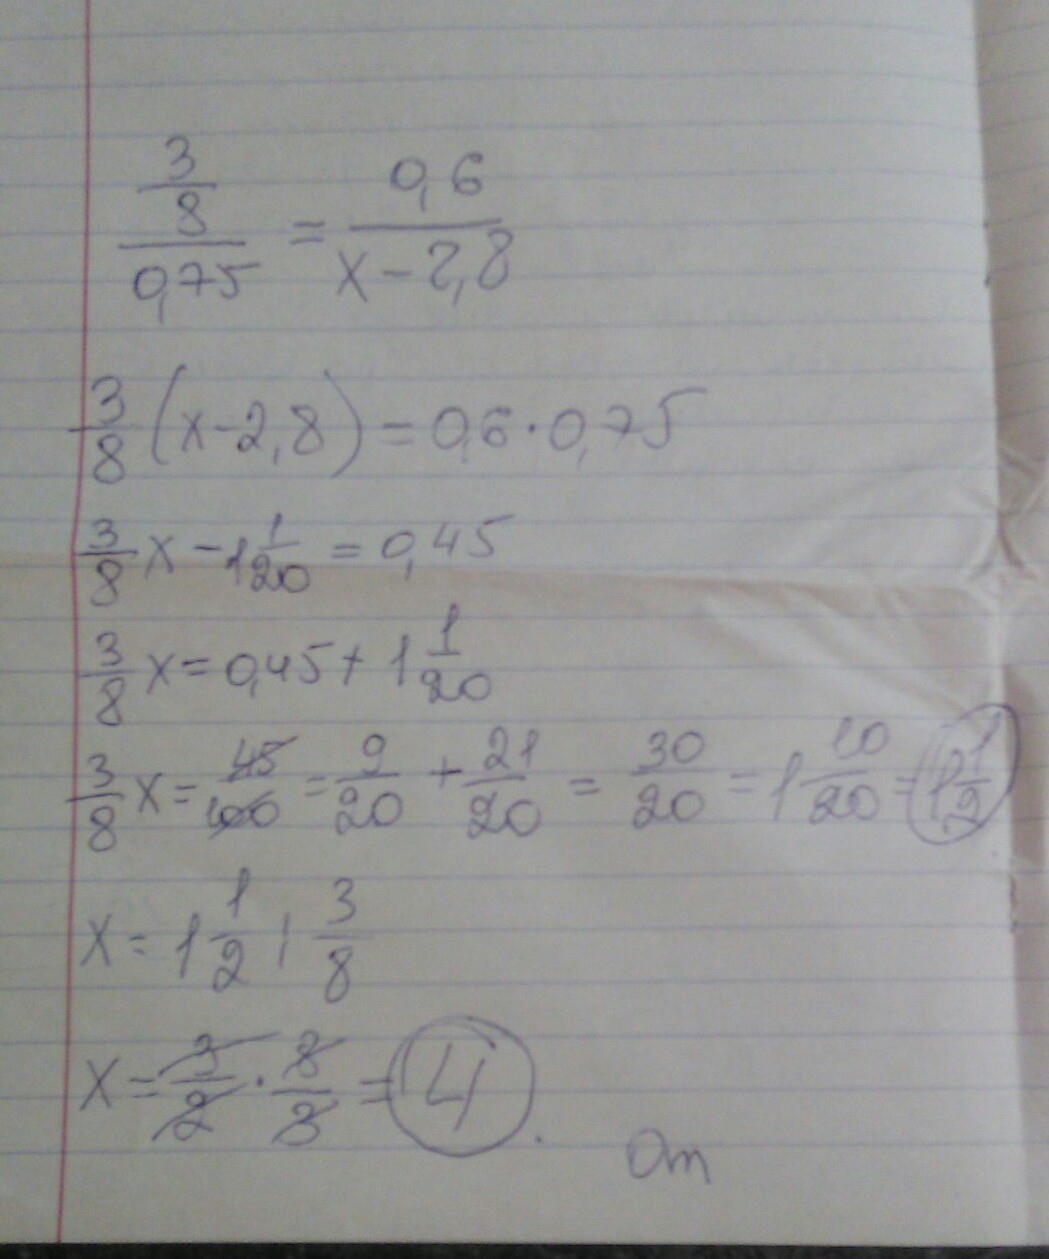 3/8 / 0,75 = 0,6 / x-2,8
3/8 (x-2,8) = 0,6 · 0,75
3/8 x - 1 1/20 = 0,45
3/8 x = 0,45 + 1 1/20
3/8 x = 45/100 = 9/20 + 21/20 = 30/20 = 1 10/20 = 1 1/2
x = 1 1/2 : 3/8
x = 3/2 · 8/3 = 4.
От